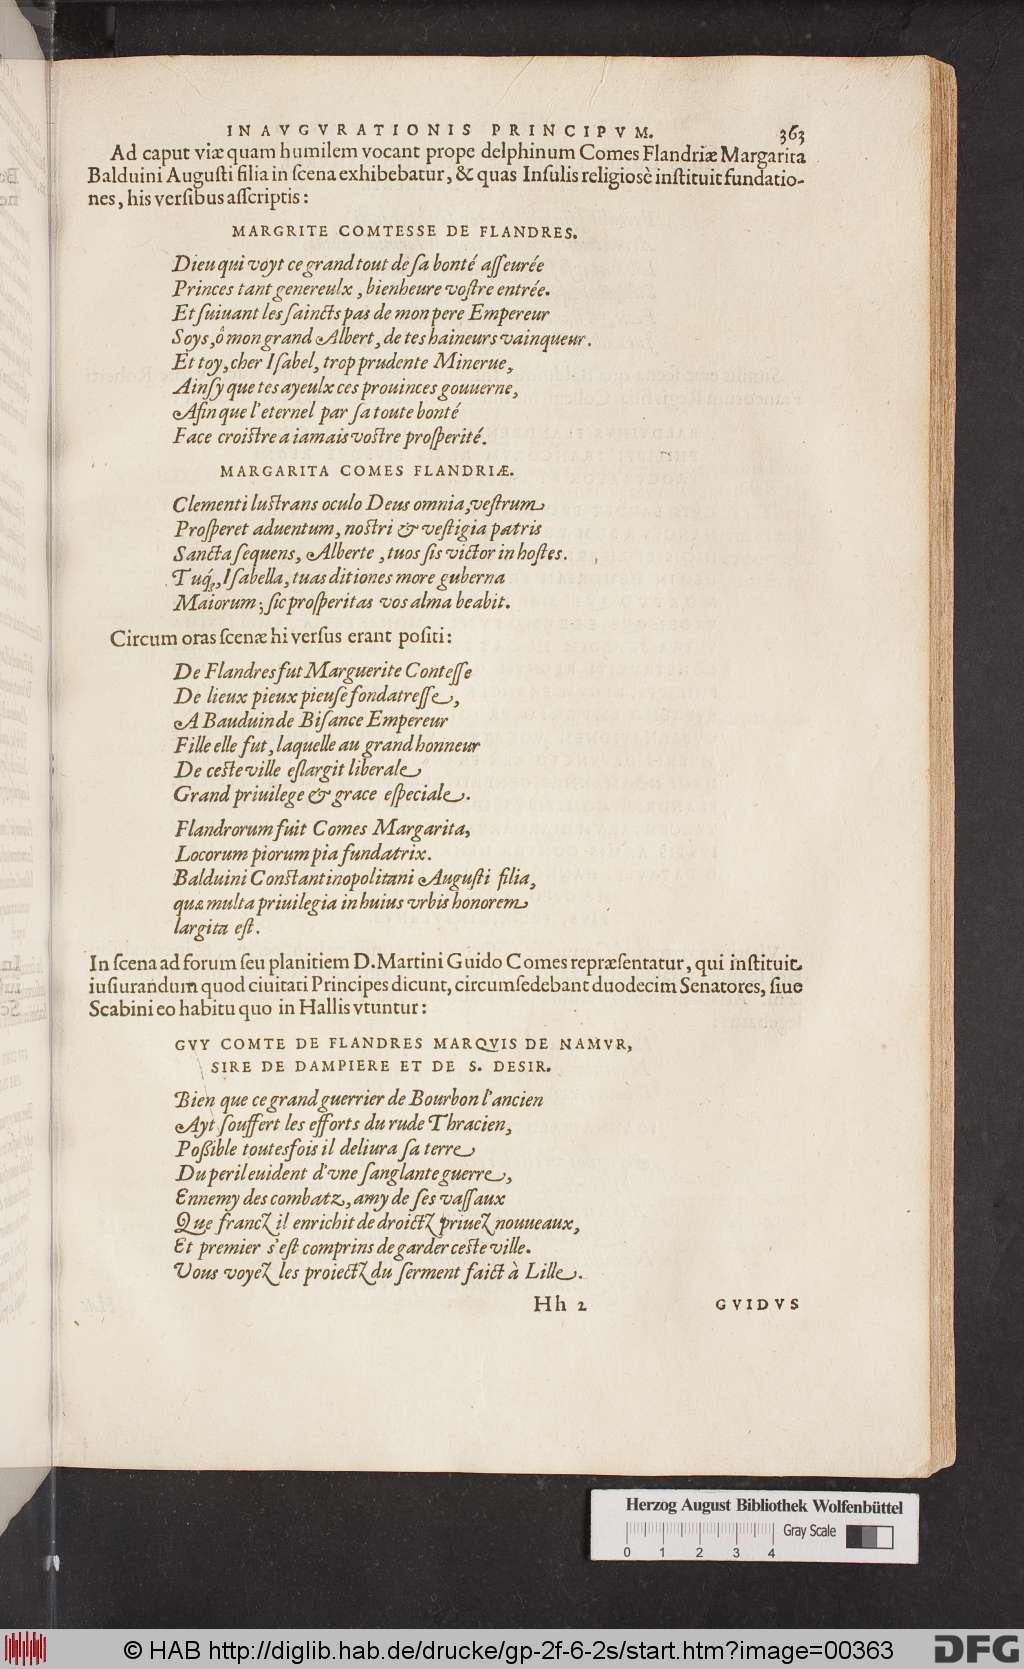 INAVGVRATIONIS PRINCIPVM. 363
Ad caput viæ quam humilem vocant prope delphinum Comes Flandriæ Margarita
Balduini Augusti filia in ſcena exhibebatur, & quas Inſulis religiosè inſtituit fundatio-
nes, his verſibus aſſcriptis:
MARGRITE COMTESSE DE FLANDRES.
Dieu qui voyt ce grand tout de ſa bonté aſſeurée
Princes tant genereulx, bienheure voſtre entrée.
Et ſuiuant les ſaincts pas de mon pere Empereur
Soys, ô mon grand Albert, de tes haineurs vainqueur.
Et toy, cher Iſabel, trop prudente Minerue,
Ainſy que tes ayeulx ces prouinces gouuerne,
Afin que l'eternel par ſa toute bonté
Face croiſtre a iamais voſtre proſperité.
MARGARITA COMES FLANDRIÆ.
Clementi luſtrans oculo Deus omnia, veſtrum
Proſperet aduentum, noſtri & veſtigia patris
Sancta ſequens, Alberte, tuos ſis victor in hoſtes.
Tuq́;, Iſabella, tuas ditiones more guberna
Maiorum; ſic proſperitas vos alma beabit.
Circum oras ſcenæ hi verſus erant poſiti:
De Flandres fut Marguerite Conteſſe
De lieux pieux pieuſe fondatreſſe,
A Bauduin de Biſance Empereur
Fille elle fut, laquelle au grand honneur
De ceſte ville eſlargit liberale
Grand priuilege & grace eſpeciale.
Flandrorum fuit Comes Margarita,
Locorum piorum pia fundatrix.
Balduini Conſtantinopolitani Auguſti filia,
quæ multa priuilegia in huius vrbis honorem
largita eſt.
In ſcena ad forum ſeu planitiem D. Martini Guido Comes repræſentatur, qui inſtituit
iuſiurandum quod ciuitati Principes dicunt, circumſedebant duodecim Senatores, ſiue
Scabini eo habitu quo in Hallis vtuntur:
GVY COMTE DE FLANDRES MARQVIS DE NAMVR,
SIRE DE DAMPIERE ET DE S. DESIR.
Bien que ce grand guerrier de Bourbon l'ancien
Ayt ſouffert les efforts du rude Thracien,
Poßible toutesfois il deliura ſa terre
Du peril euident d'vne ſanglante guerre,
Ennemy des combatz, amy de ſes vaſſaux
Que francz il enrichit de droictz priuez nouueaux,
Et premier s'eſt comprins de garder ceſte ville.
Vous voyez les proiectz du ſerment faict à Lille.
Hh 2 GVIDVS
Herzog August Bibliothek Wolfenbüttel
Gray Scale
0 1 2 3 4
© HAB http://diglib.hab.de/drucke/gp-2f-6-2s/start.htm?image=00363 DFG